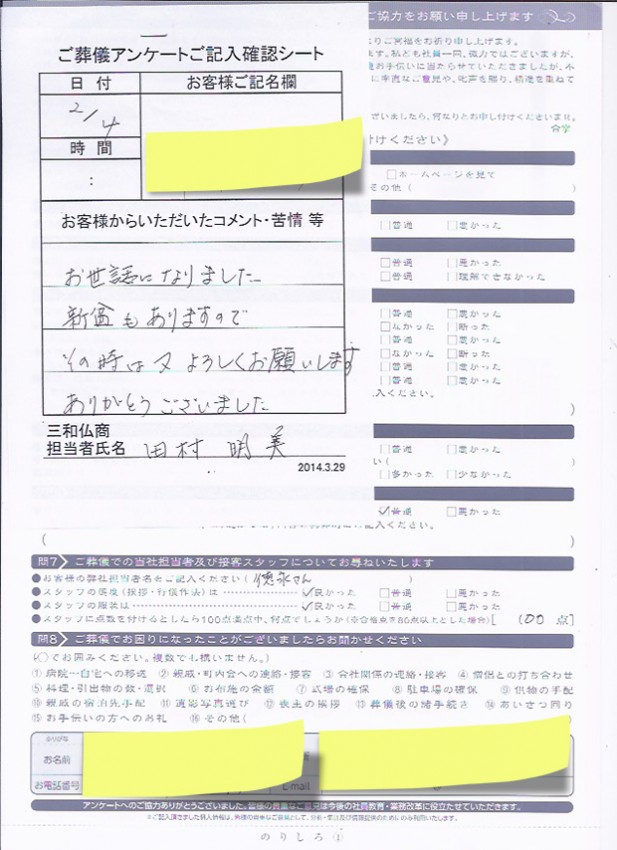 ご協力をお願い申し上げます
ご葬儀アンケートご記入確認シート
日 付
お客様ご記名欄
2/4
時 間
:
お客様からいただいたコメント・苦情 等
お世話になりました
新盆もありますので
その時は又よろしくお願いします
ありがとうございました
三和仏商
担当者氏名 田村 明美
2014.3.29
よりご冥福をお祈り申し上げます。
ざいましたら、何なりとお申し付けくださいませ。
合掌
付けください》
□ホームページを見て
その他(
□普通 □悪かった
□普通 □悪かった
□普通 □理解できなかった
□普通 □悪かった
□なかった □断った
□普通 □悪かった
□なかった □断った
□普通 □悪かった
□普通 □悪かった
入ください。
)
□普通 □悪かった
い(
□多かった □少なかった
☑普通 □悪かった
記入ください。
( )
問7 ご葬儀での当社担当者及び接客スタッフについてお尋ねいたします
●お客様の弊社担当者名をご記入ください( 徳永さん )
●スタッフの態度(挨拶・行儀作法)は ☑良かった □普通 □悪かった
●スタッフの服装は ☑良かった □普通 □悪かった
●スタッフに点数を付けるとしたら100点満点中、何点でしょうか(※合格点を80点以上とした場合)[ 100 点]
問8 ご葬儀でお困りになったことがございましたらお聞かせください
(○でお囲みください。複数でも構いません。)
①病院→自宅への移送 ②親戚・町内会への連絡・接客 ③会社関係の連絡・接客 ④僧侶との打ち合わせ
⑤料理・引出物の数・選択 ⑥お布施の金額 ⑦式場の確保 ⑧駐車場の確保 ⑨供物の手配
⑩親戚の宿泊先手配 ⑪遺影写真選び ⑫喪主の挨拶 ⑬葬儀後の諸手続き ⑭あいさつ回り
⑮お手伝いの方へのお礼 ⑯その他(
ふりがな
お名前
お電話番号
E-mail
アンケートへのご協力ありがとうございました。皆様の貴重なご意見は今後の社員教育・業務改革に役立たせていただきます。
のりしろ①